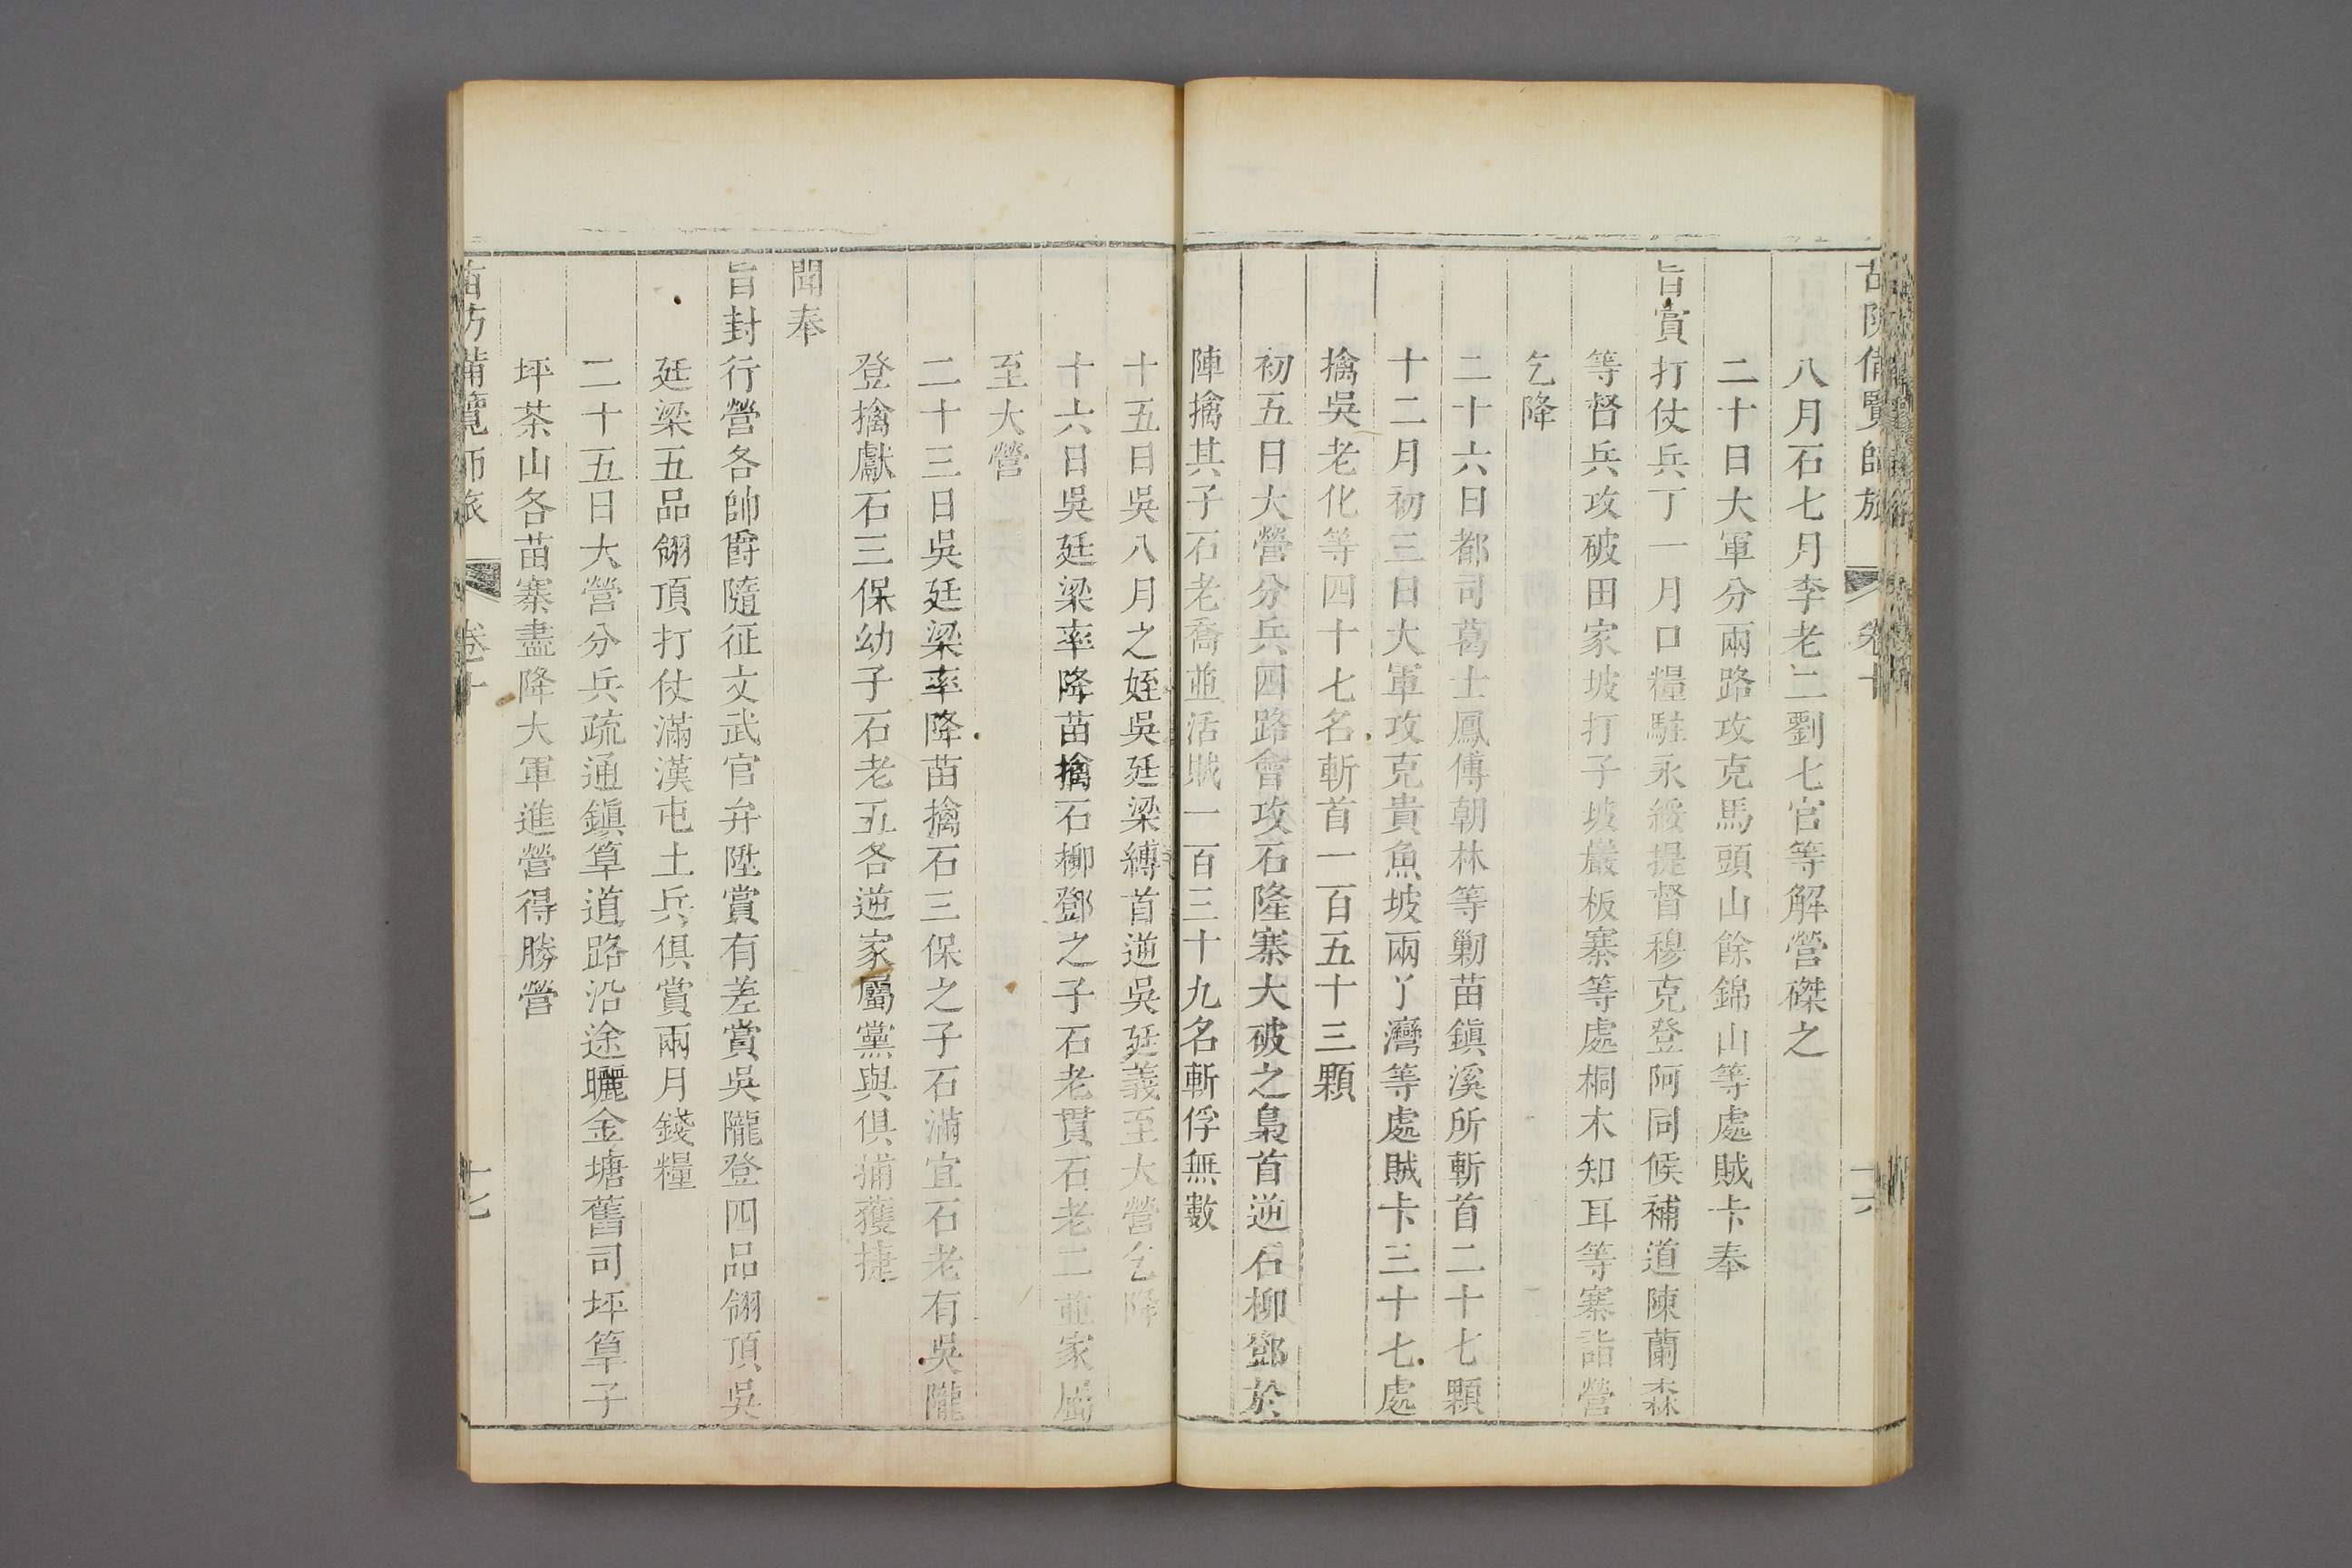 苗防備覽師旅 卷十 十六
八月石七月李老二劉七官等解營磔之
二十日大軍分兩路攻克馬頭山餘錦山等處賊卡奉
旨賞打仗兵丁一月口糧駐永綏提督穆克登阿同候補道陳蘭森
等督兵攻破田家坡打子坡巖板寨等處桐木知耳等寨詣營
乞降
二十六日都司葛士鳳傅朝林等勦苗鎮溪所斬首二十七顆
十二月初三日大軍攻克貴魚坡兩丫灣等處賊卡三十七處
擒吳老化等四十七名斬首一百五十三顆
初五日大營分兵四路會攻石隆寨大破之梟首逆石柳鄧於
陣擒其子石老喬並活賊一百三十九名斬俘無數
十五日吳八月之姪吳廷梁縛首逆吳廷義至大營乞降
十六日吳廷梁率降苗擒石柳鄧之子石老貫石老二並家屬
至大營
二十三日吳廷梁率降苗擒石三保之子石滿宜石老有吳隴
登擒獻石三保幼子石老五各逆家屬黨與俱捕獲捷
聞奉
旨封行營各帥爵隨征文武官弁陞賞有差賞吳隴登四品翎頂吳
廷梁五品翎頂打仗滿漢屯土兵俱賞兩月錢糧
二十五日大營分兵疏通鎮筸道路沿途曬金塘舊司坪筸子
坪茶山各苗寨盡降大軍進營得勝營
苗防備覽師旅 卷十 十七